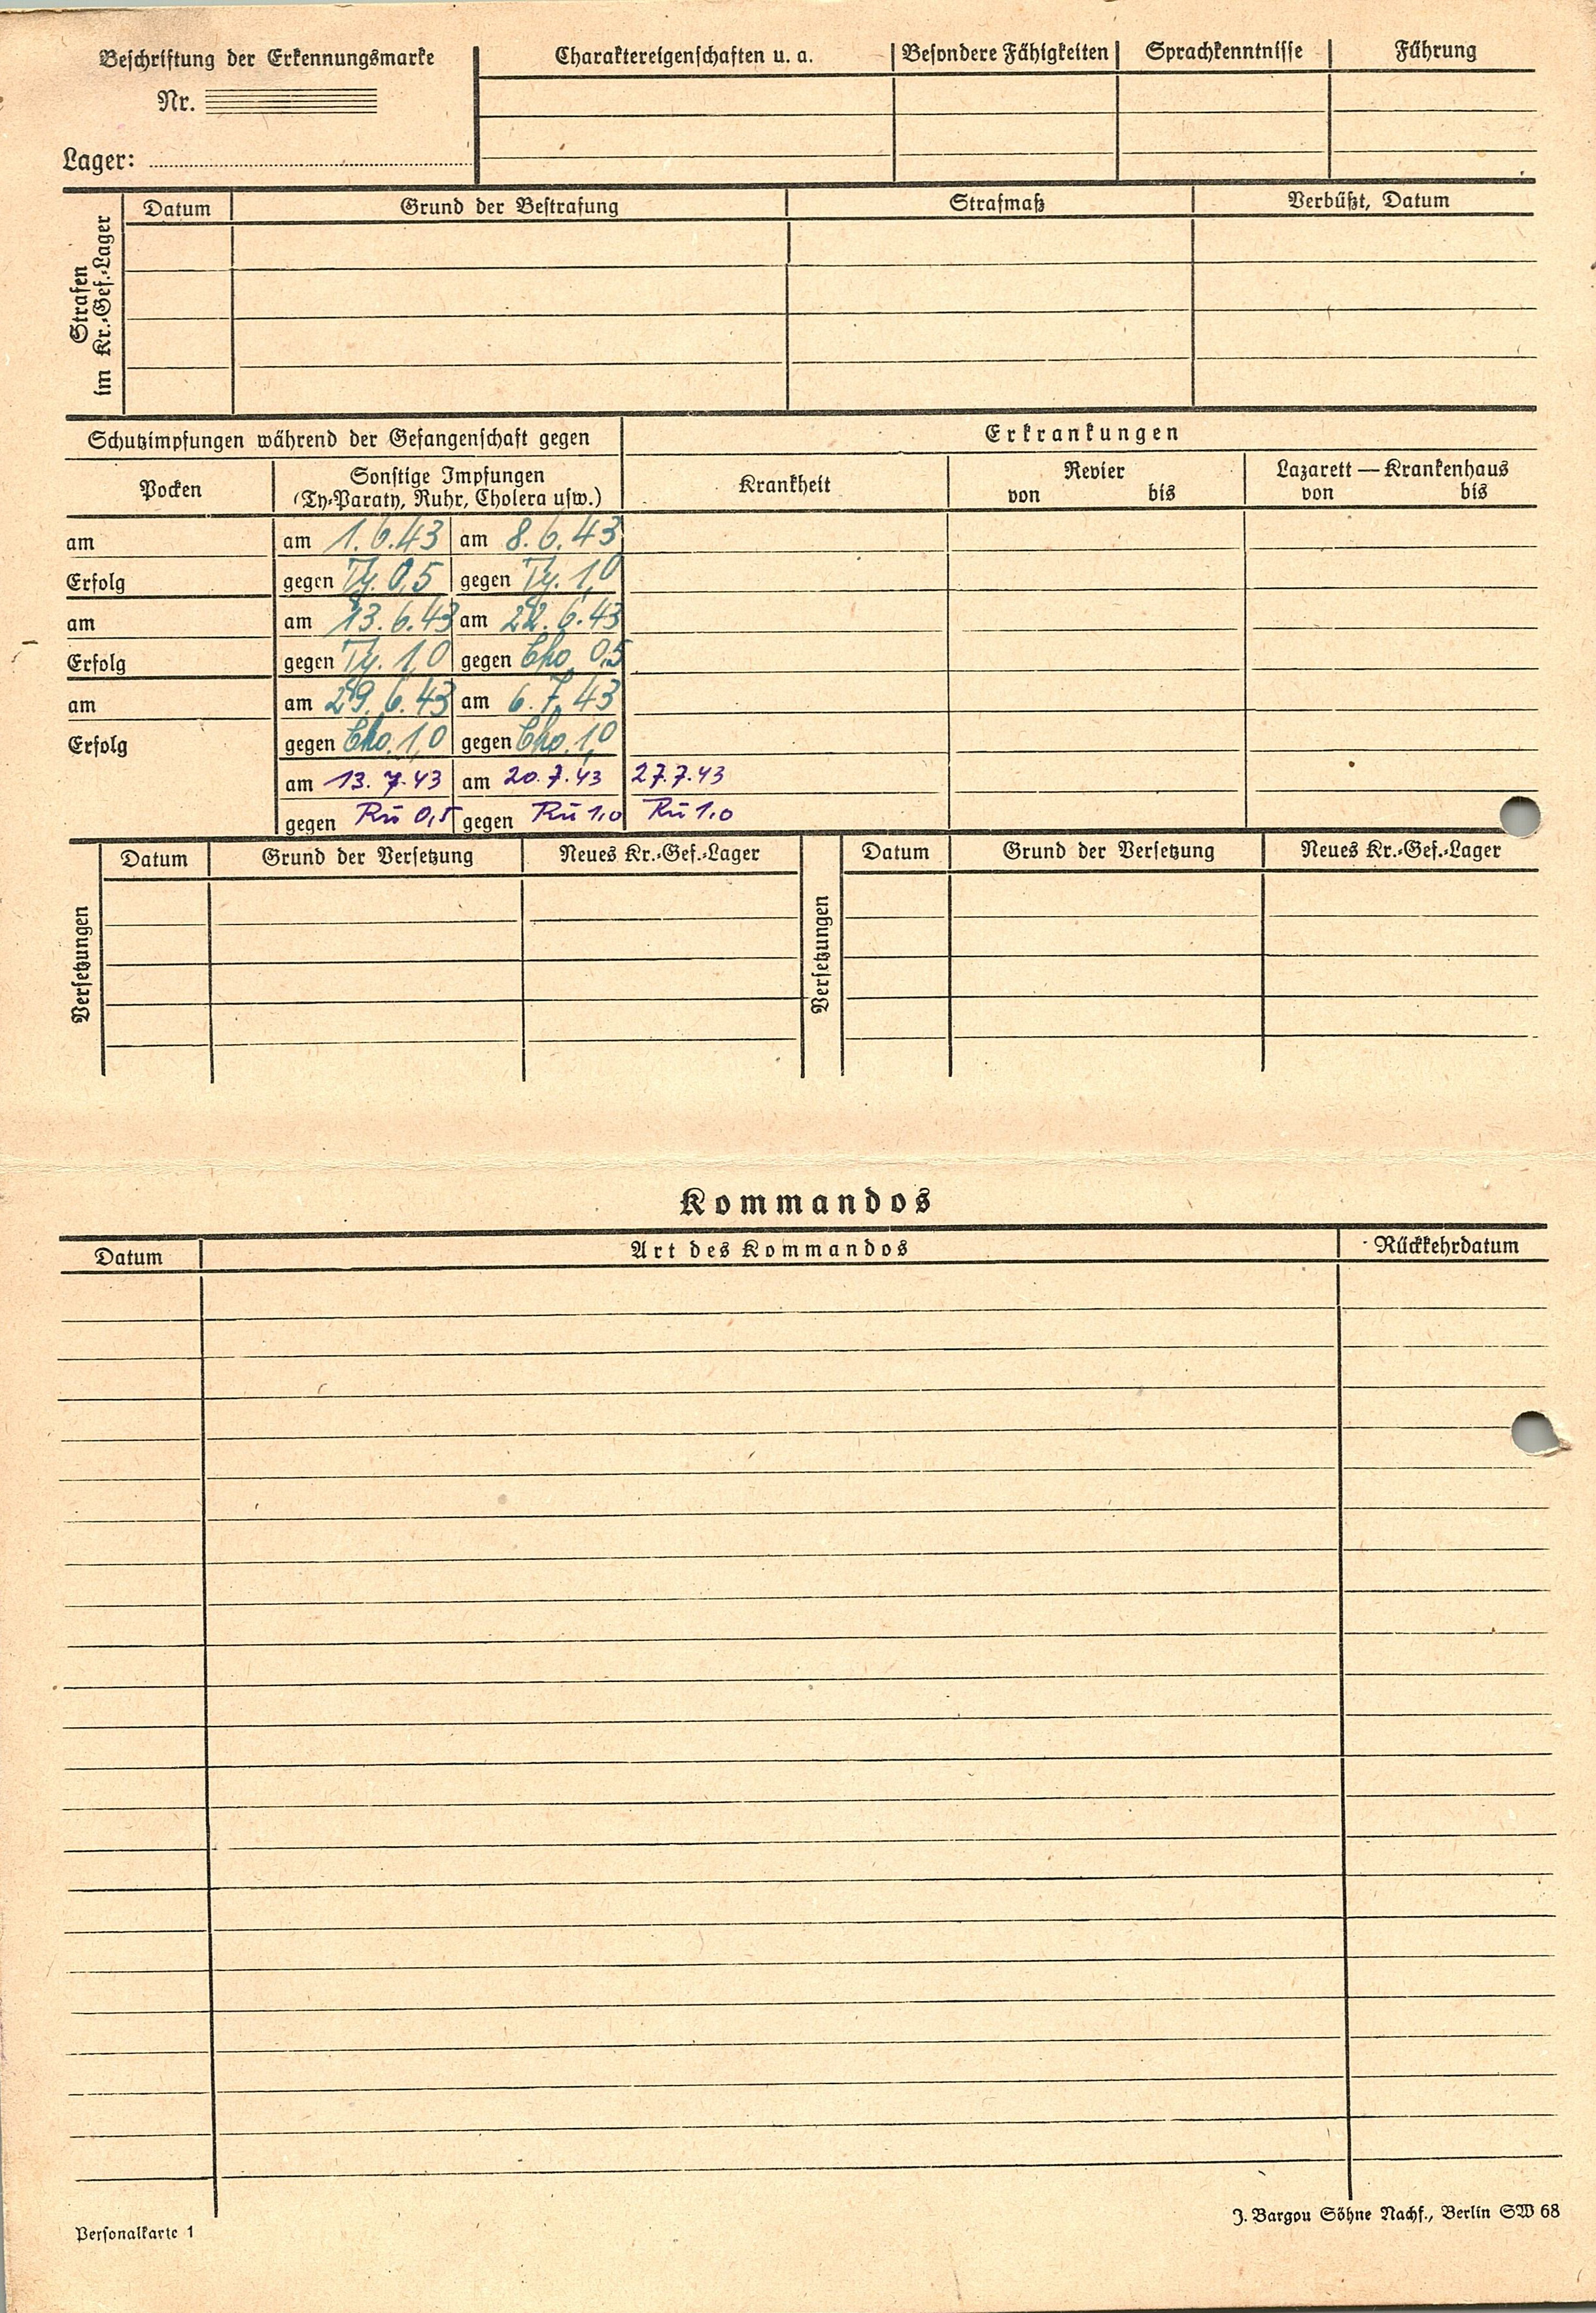 Beschriftung der Erkennungsmarke
Nr.
Lager:
Charaktereigenschaften u. a. Besondere Fähigkeiten Sprachkenntnisse Führung
Strafen
im Kr.-Gef.-Lager
Datum Grund der Bestrafung Strafmaß Verbüßt, Datum
Schutzimpfungen während der Gefangenschaft gegen Erkrankungen
Pocken
Sonstige Impfungen
(Ty-Paraty, Ruhr, Cholera usw.)
Krankheit
Revier
von bis
Lazarett — Krankenhaus
von bis
am am 1.6.43 am 8.6.43
Erfolg gegen Ty. 0,5 gegen Ty. 1,0
am am 13.6.43 am 22.6.43
Erfolg gegen Ty. 1,0 gegen Cho 0,5
am am 29.6.43 am 6.7.43
Erfolg gegen Cho. 1,0 gegen Cho. 1,0
am 13.7.43 am 20.7.43 27.7.43
gegen Ru 0,5 gegen Ru 1,0 Ru 1.0
Versetzungen
Datum Grund der Versetzung Neues Kr.-Gef.-Lager
Versetzungen
Datum Grund der Versetzung Neues Kr.-Gef.-Lager
Kommandos
Datum Art des Kommandos Rückkehrdatum
Personalkarte 1
J. Bargou Söhne Nachf., Berlin SW 68